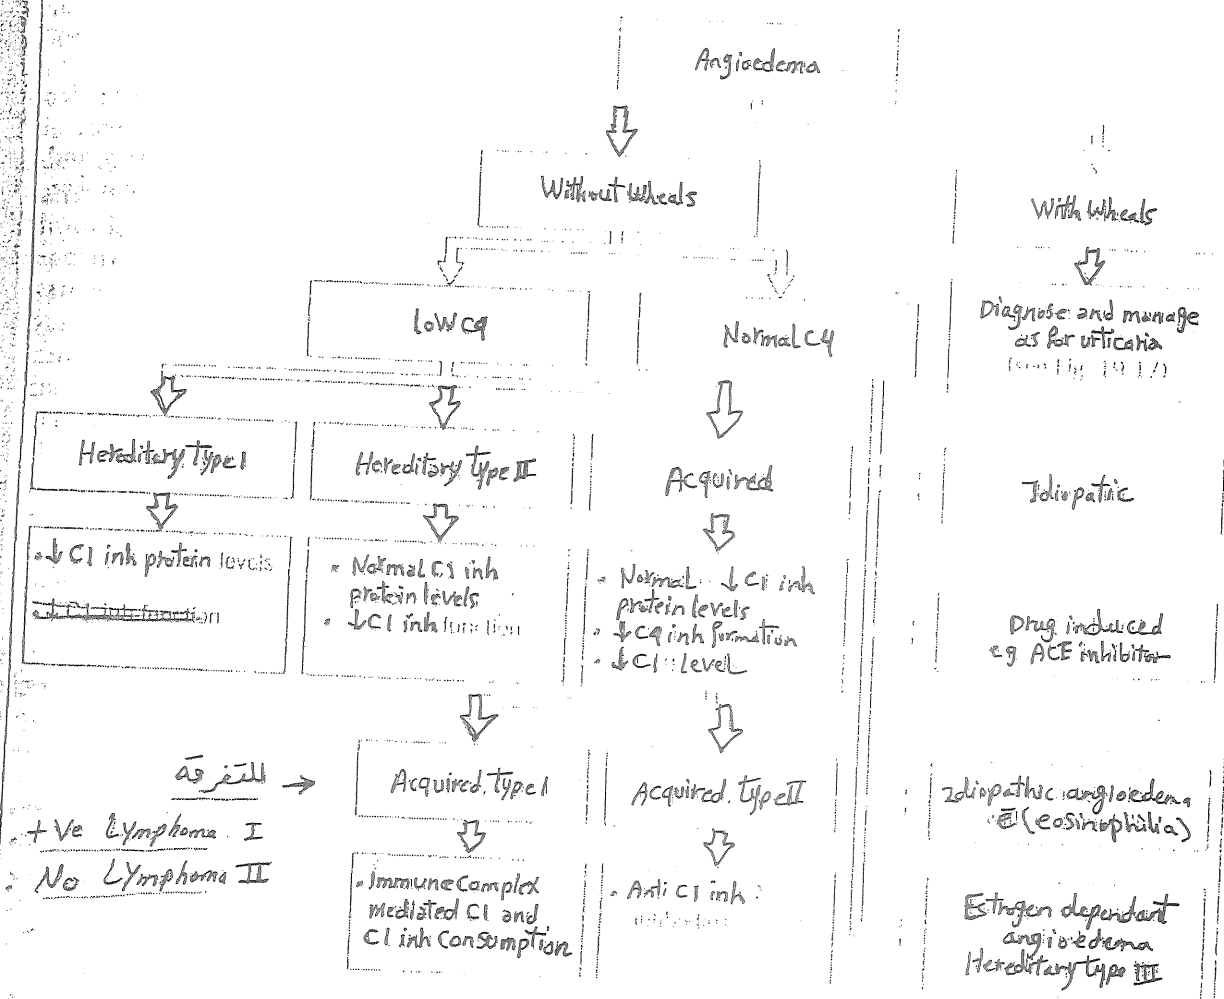 Angioedema
Without Wheals
With Wheals
low C4
Normal C4
Diagnose and manage
as for urticaria
(see Fig. 19.17)
Hereditary Type I
Hereditary type II
Acquired
Idiopathic
• ↓ C1 inh protein levels
• ↓ C1 inh function
• Normal C1 inh
protein levels
• ↓ C1 inh function
• Normal ↓ C1 inh
protein levels
• ↓ C4 inh formation
• ↓ C1 level
Drug induced
eg ACE inhibitor
للتفرقة →
+Ve Lymphoma I
No Lymphoma II
Acquired Type I
Acquired Type II
Idiopathic angioedema
c̄ (eosinophilia)
• Immune Complex
Mediated C1 and
C1 inh Consumption
• Anti C1 inh
Estrogen dependant
angioedema
Hereditary type III